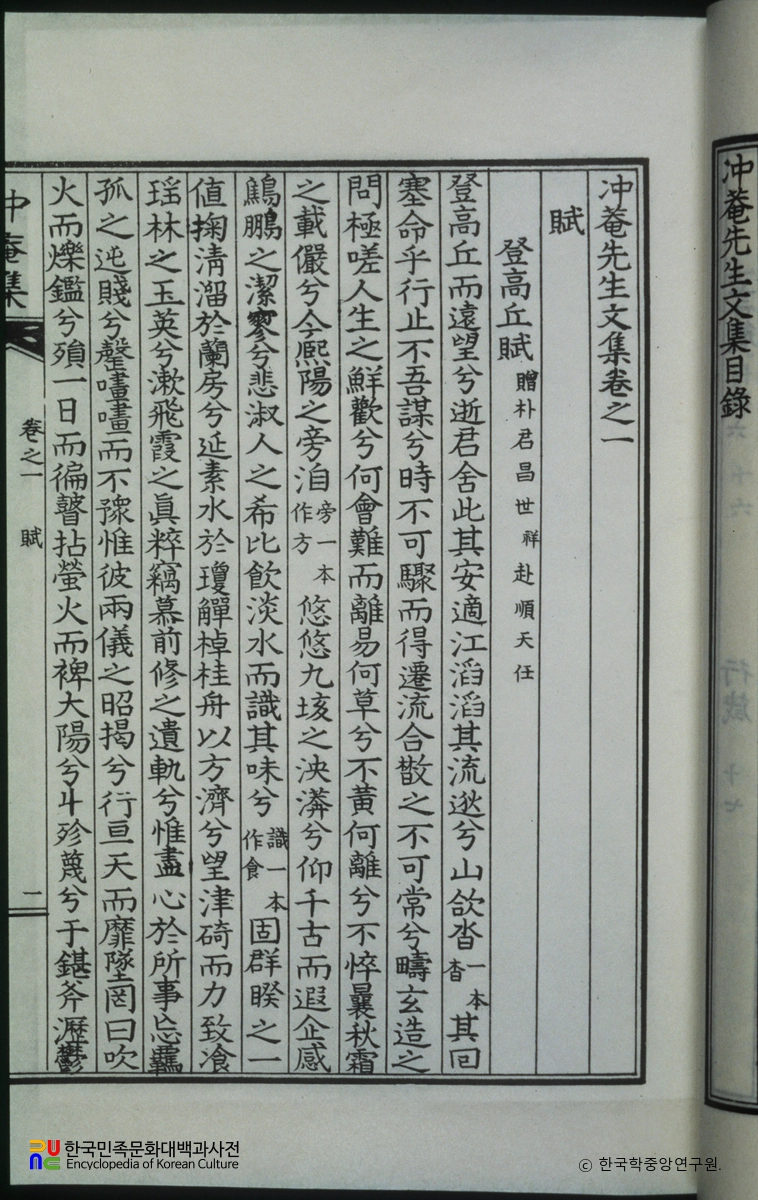 冲菴先生文集目錄
冲菴先生文集卷之一
賦
登高丘賦 贈朴君昌世祥赴順天任
登高丘而遠望兮逝君舍此其安適江滔滔其流逖兮山欱沓 一本沓 其回
塞命乎行止不吾謀兮時不可驟而得遷流合散之不可常兮疇玄造之
問極嗟人生之鮮歡兮何會難而離易何草兮不黃何離兮不悴曩秋霜
之載儼兮今熙陽之旁洎 旁一本作方 悠悠九垓之泱漭兮仰千古而遐企感
鷦鵬之潔寥兮悲淑人之希比飮淡水而識其味兮 識一本作食 固群睽之一
値掬淸溜於蘭房兮延素水於瓊觶棹桂舟以方濟兮望津碕而力致飡
瑶林之玉英兮漱飛霞之眞粹竊慕前修之遺軌兮惟盡心於所事忘羈
孤之迍賤兮罄嚍嚍而不豫惟彼兩儀之昭揭兮行亘天而靡墜罔曰吹
火而爍鑑兮殞一日而徧瞽拈螢火而裨大陽兮斗殄蔑兮于鍖斧瀝鬱
冲菴集
卷之一 賦
一
한국민족문화대백과사전
Encyclopedia of Korean Culture
© 한국학중앙연구원.